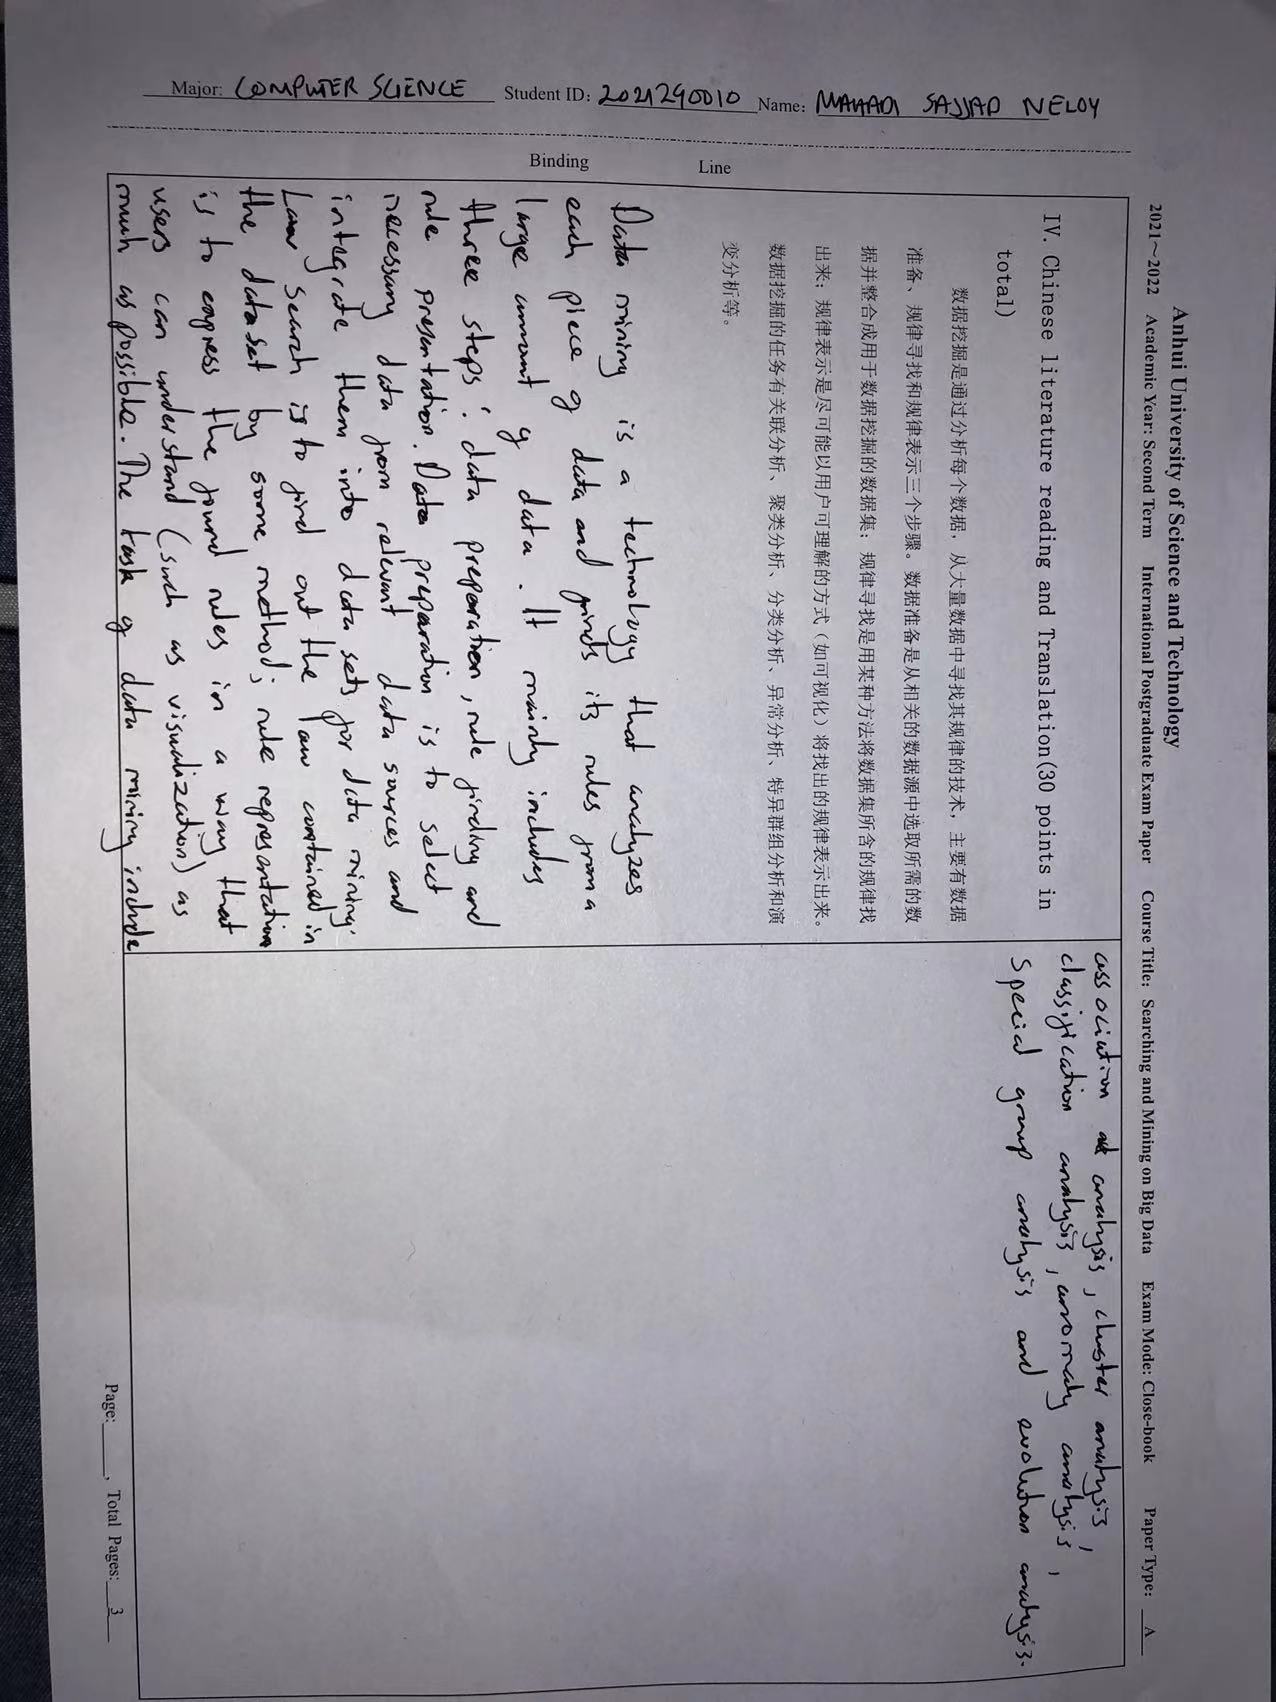 Anhui University of Science and Technology
2021～2022 Academic Year: Second Term International Postgraduate Exam Paper Course Title: Searching and Mining on Big Data Exam Mode: Close-book Paper Type: A
Major: COMPUTER SCIENCE Student ID: 2021290010 Name: MAHADI SAJJAD NELOY
Binding Line
IV. Chinese literature reading and Translation(30 points in
total)
数据挖掘是通过分析每个数据，从大量数据中寻找其规律的技术，主要有数据
准备、规律寻找和规律表示三个步骤。数据准备是从相关的数据源中选取所需的数
据并整合成用于数据挖掘的数据集；规律寻找是用某种方法将数据集所含的规律找
出来；规律表示是尽可能以用户可理解的方式（如可视化）将找出的规律表示出来。
数据挖掘的任务有关联分析、聚类分析、分类分析、异常分析、特异群组分析和演
变分析等。
Data mining is a technology that analyzes
each piece of data and finds its rules from a
large amount of data. It mainly includes
three steps: data preparation, rule finding and
rule presentation. Data preparation is to select
necessary data from relevant data sources and
integrate them into data sets for data mining.
Law search is to find out the law contained in
the data set by some method; rule representation
is to express the found rules in a way that
users can understand (such as visualization) as
much as possible. The task of data mining include
association analysis, cluster analysis,
classification analysis, anomaly analysis,
special group analysis and evolution analysis.
Page: , Total Pages: 3